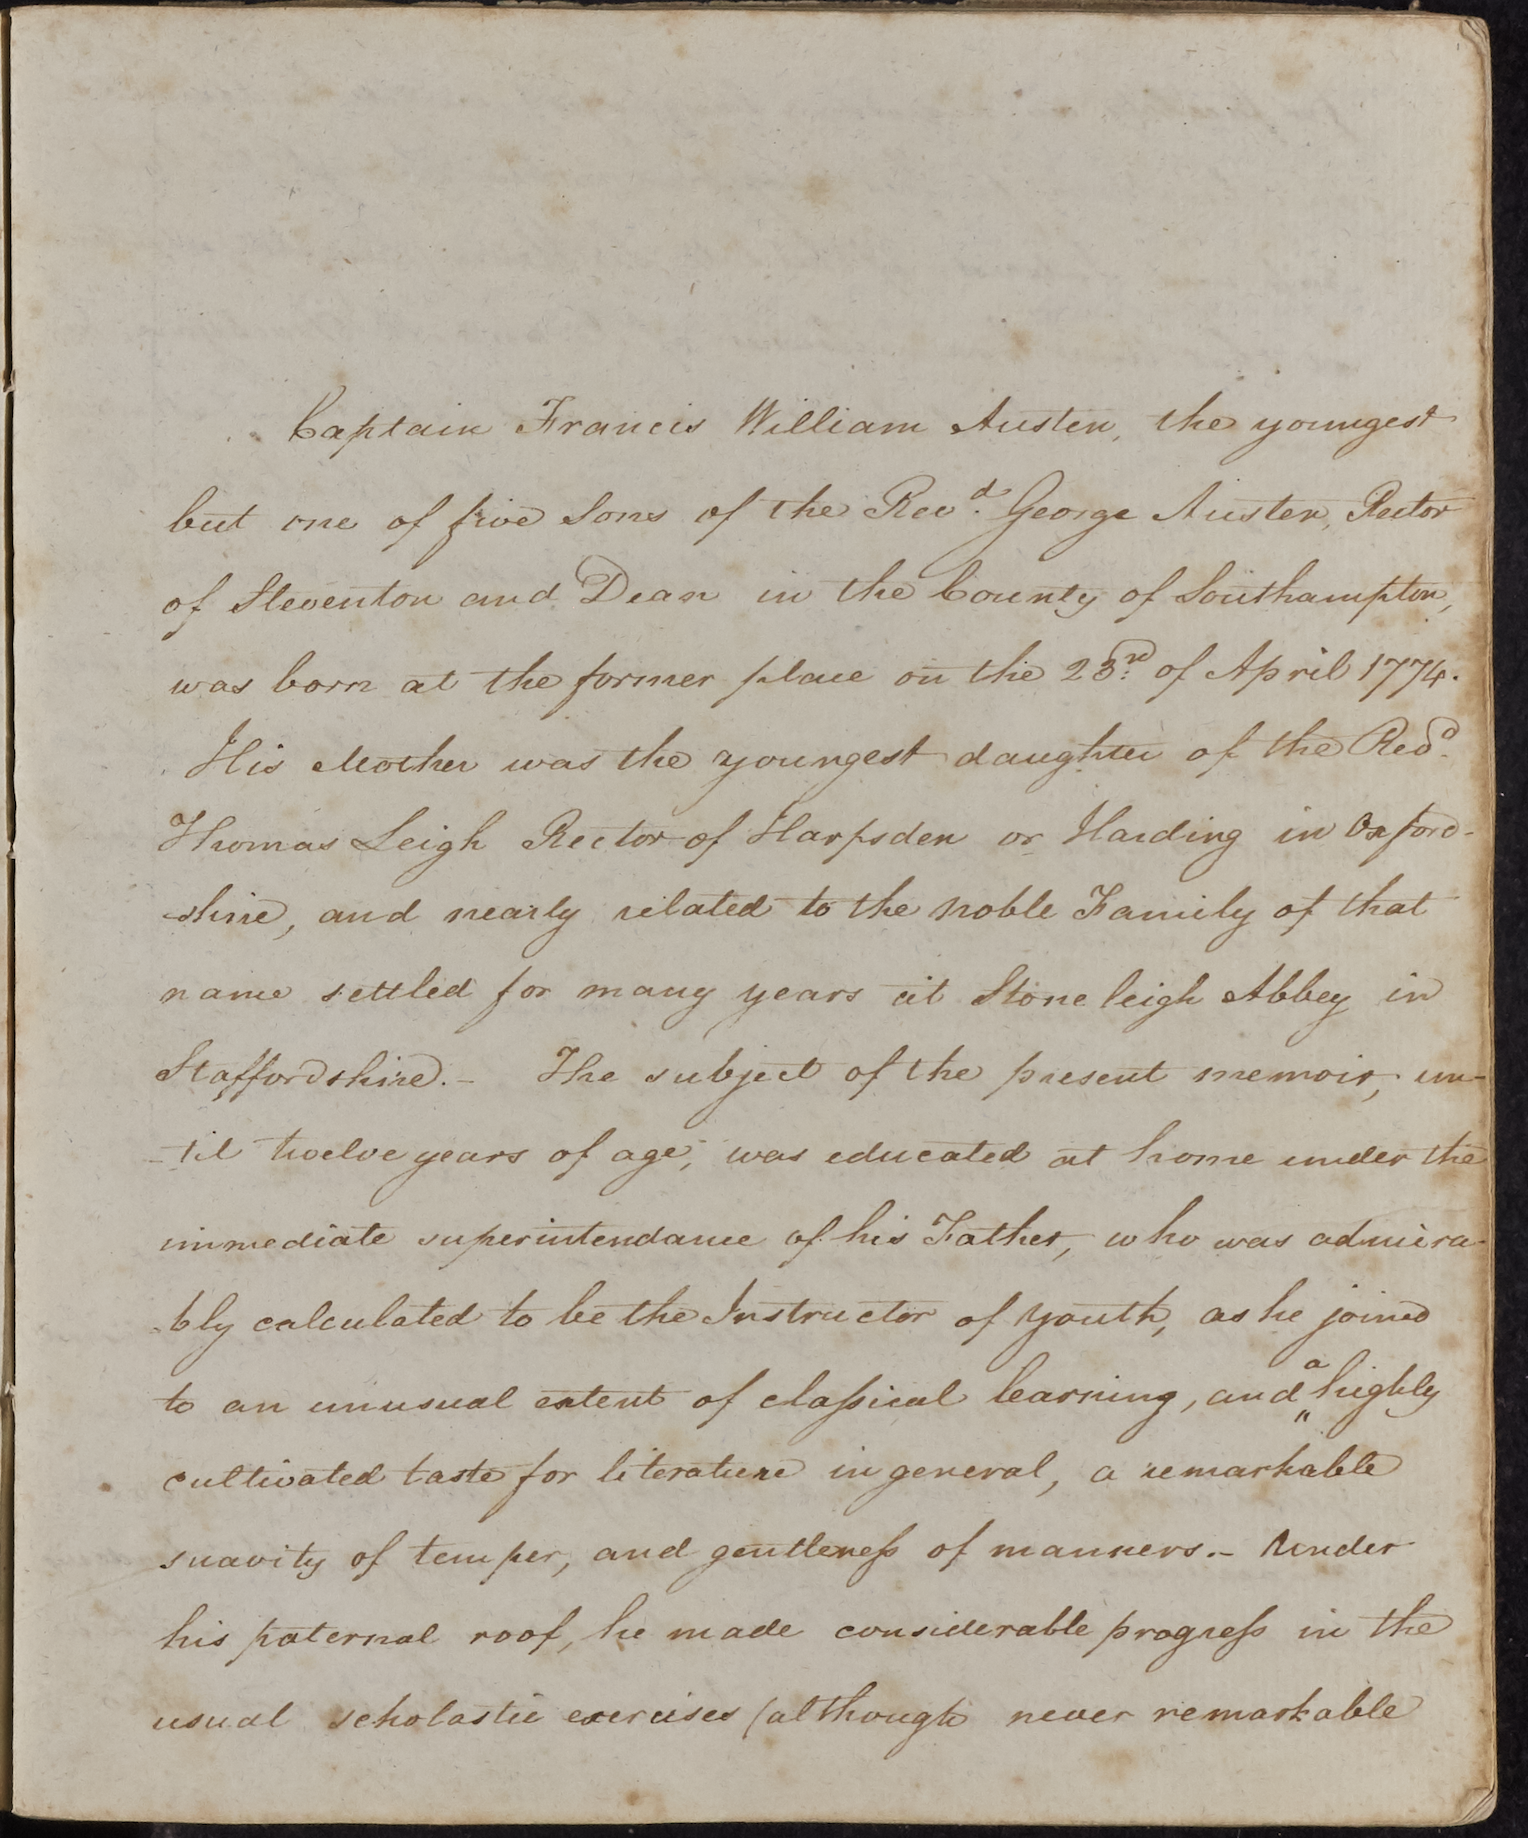 Captain Francis William Austen, the youngest
but one of five Sons of the Rev.d George Austen, Rector
of Steventon and Dean in the County of Southampton,
was born at the former place on the 23.rd of April 1774.
His Mother was the youngest daughter of the Rev.d
Thomas Leigh Rector of Harpsden or Harding in Oxford-
-shire, and nearly related to the noble Family of that
name settled for many years at Stoneleigh Abbey in
Staffordshire. - The subject of the present memoir, un-
-til twelve years of age, was educated at home under the
immediate superintendance of his Father, who was admira-
-bly calculated to be the Instructor of Youth, as he joined
to an unusual extent of claſsical learning, and a highly
cultivated taste for literature in general, a remarkable
suavity of temper, and gentleneſs of manners. - Under
his paternal roof, he made considerable progreſs in the
usual scholastic exercises (although never remarkable